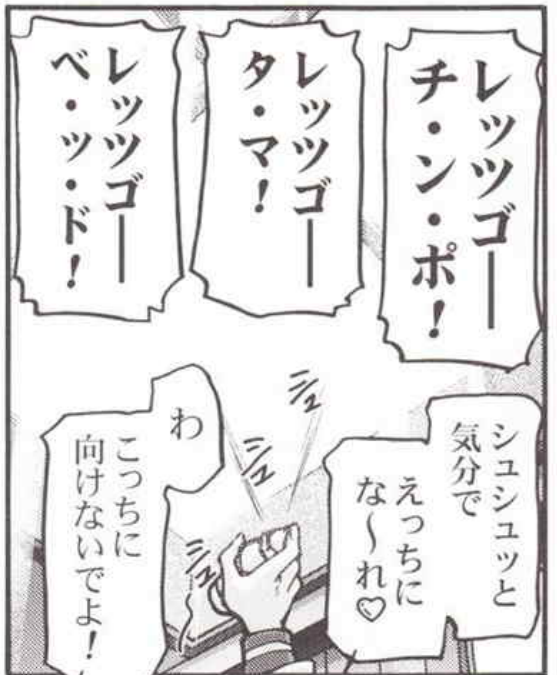 レッツゴー
チ・ン・ポ!
レッツゴー
タ・マ!
レッツゴー
ベ・ッ・ド!
シュシュッと
気分で
えっちに
な〜れ♡
シュ
シュ
シュ
わ
こっちに
向けないでよ!